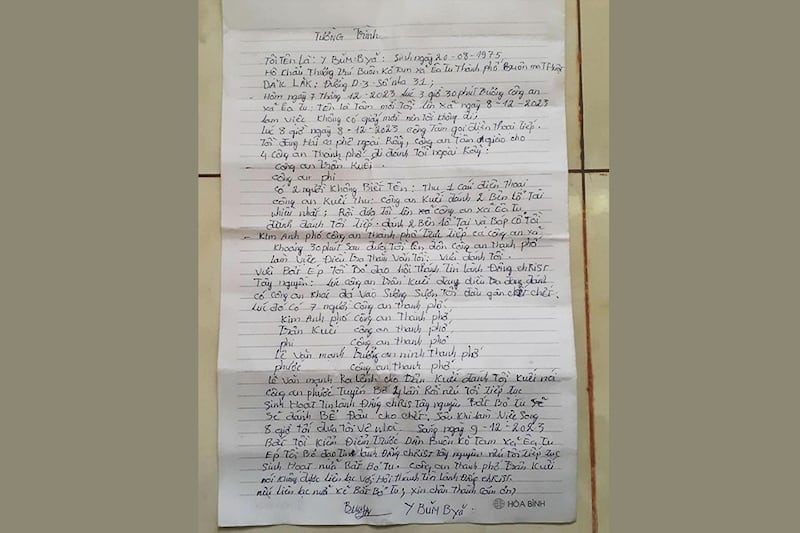 TƯỜNG Trình
Tôi Tên Là: Y BŬM. Byă: Sinh ngày 20-08-1975,
Hộ Khẩu Thường Trú Buôn KôTam xã Ea Tu Thành phố Buôn ma Thuột
ĐĂK LĂK; Đường D.3. Số nhà 31;
- Hôm ngày 7 Tháng 12-2023 Lúc 3 giờ 30 phút Trưởng công an
xã Ea Tu: Tên là Tâm mời Tôi lên xã ngày 8-12-2023
làm việc Không có giấy mời nên tôi không đi;
Lúc 8 giờ ngày 8-12-2023 công Tâm gọi điện Thoại tiếp.
Tôi đang Hái cà phê ngoài Rẫy, công an Tâm giao cho
4 công an Thành phố đi đánh Tôi ngoài Rẫy:
- công an Trần Kuối.
công an phi
có 2 người Không Biết Tên: Thu 1 cái điện Thoại
công an Kuối Thu: Công an Kuối đánh 2 Bên Lỗ Tai
nhiều nhất; Rồi đưa Tôi lên xã công an xã Ea Tu
đánh Tôi Tiếp. đánh 2 Bên lỗ Tai và Bóp Cổ Tôi
- Kim Anh phó công an Thành phố Trực Tiếp cả công an xã
Khoảng 30 phút Sau đưa Tôi lên đồn Công an Thành phố
làm Việc Điều Tra Thẩm Vấn Tôi: Vừa đánh Tôi.
Vừa Bắt Ép Tôi Bỏ đạo hội Thánh Tin Lành Đấng chRiST
Tây nguyên: Lúc công an Trần Kuối đang điều Tra đang đánh
có công an Khác đá Vào Sường Sườn Tôi đau gần chết chết.
Lúc đó có 7 người Công an Thành phố
Kim Anh phó Công an Thành phố,
Trần Kuối công an Thành phố
phi Công an Thành phố
Lê Văn mạnh Trưởng an ninh Thành phố
phước công an Thành phố
Lê Văn mạnh Ra lệnh cho Trần Kuối đánh Tôi Kuối nói
Công an phước Tuyên Bố 2 lần Rồi nếu Tôi Tiếp Tục
Sinh Hoạt Tin lành Đấng chRiS Tây nguyên Bắt Bỏ Tù Sẽ
Sẽ đánh BỂ Đầu cho chết. Sau Khi làm Việc Song
8 giờ Tối đưa Tôi Về nhà. Sang ngày 9-12-2023
Bắt Tôi Kiểm Điểm Trước Dân Buôn KôTam xã Ea Tu
Ép Tôi Bỏ đạo Tin lành Đấng chRiST Tây nguyên nếu Tôi Tiếp Tục
Sinh Hoạt nữa Bắt Bỏ Tù. Công an Thành phố Trần Kuối
nói Không được liên lạc Với Hội Thánh Tin Lành Đấng chRiST.
nếu liên lạc nữa Sẽ Bắt Bỏ Tù; xin chân Thành Cảm ơn?
Y BŬM Byă.
HÒA BÌNH